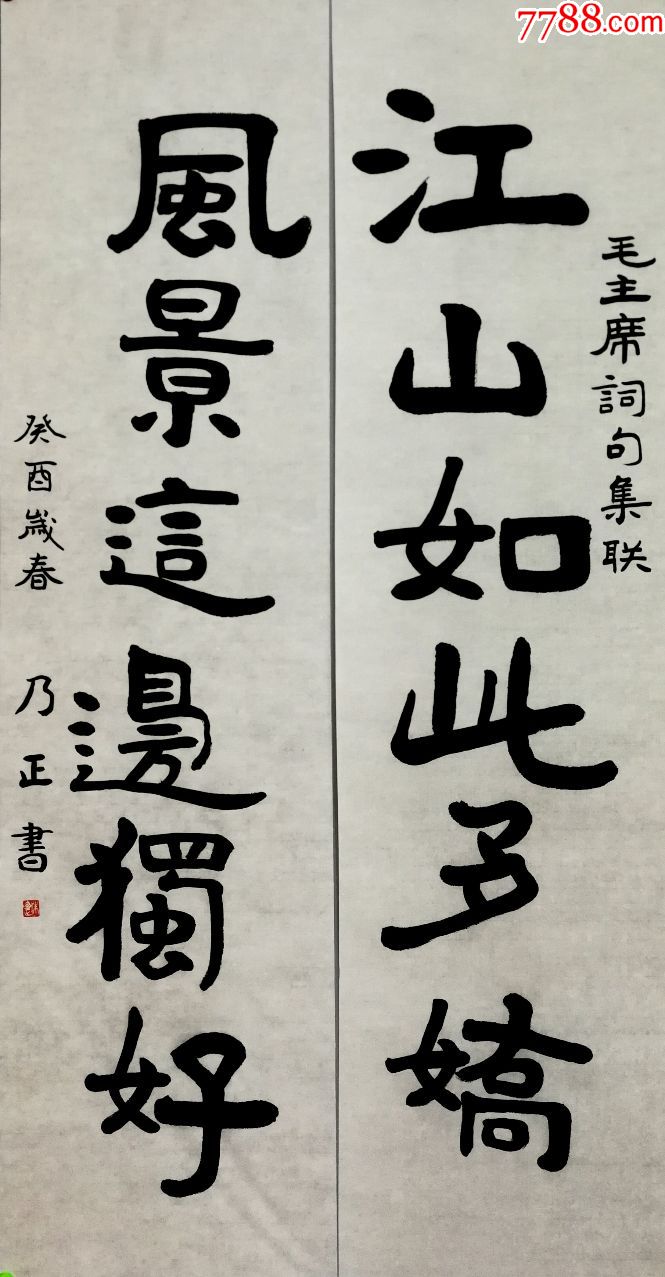 7788.com
毛主席詞句集联
江山如此多嬌
風景這邊獨好
癸酉歲春 乃正書